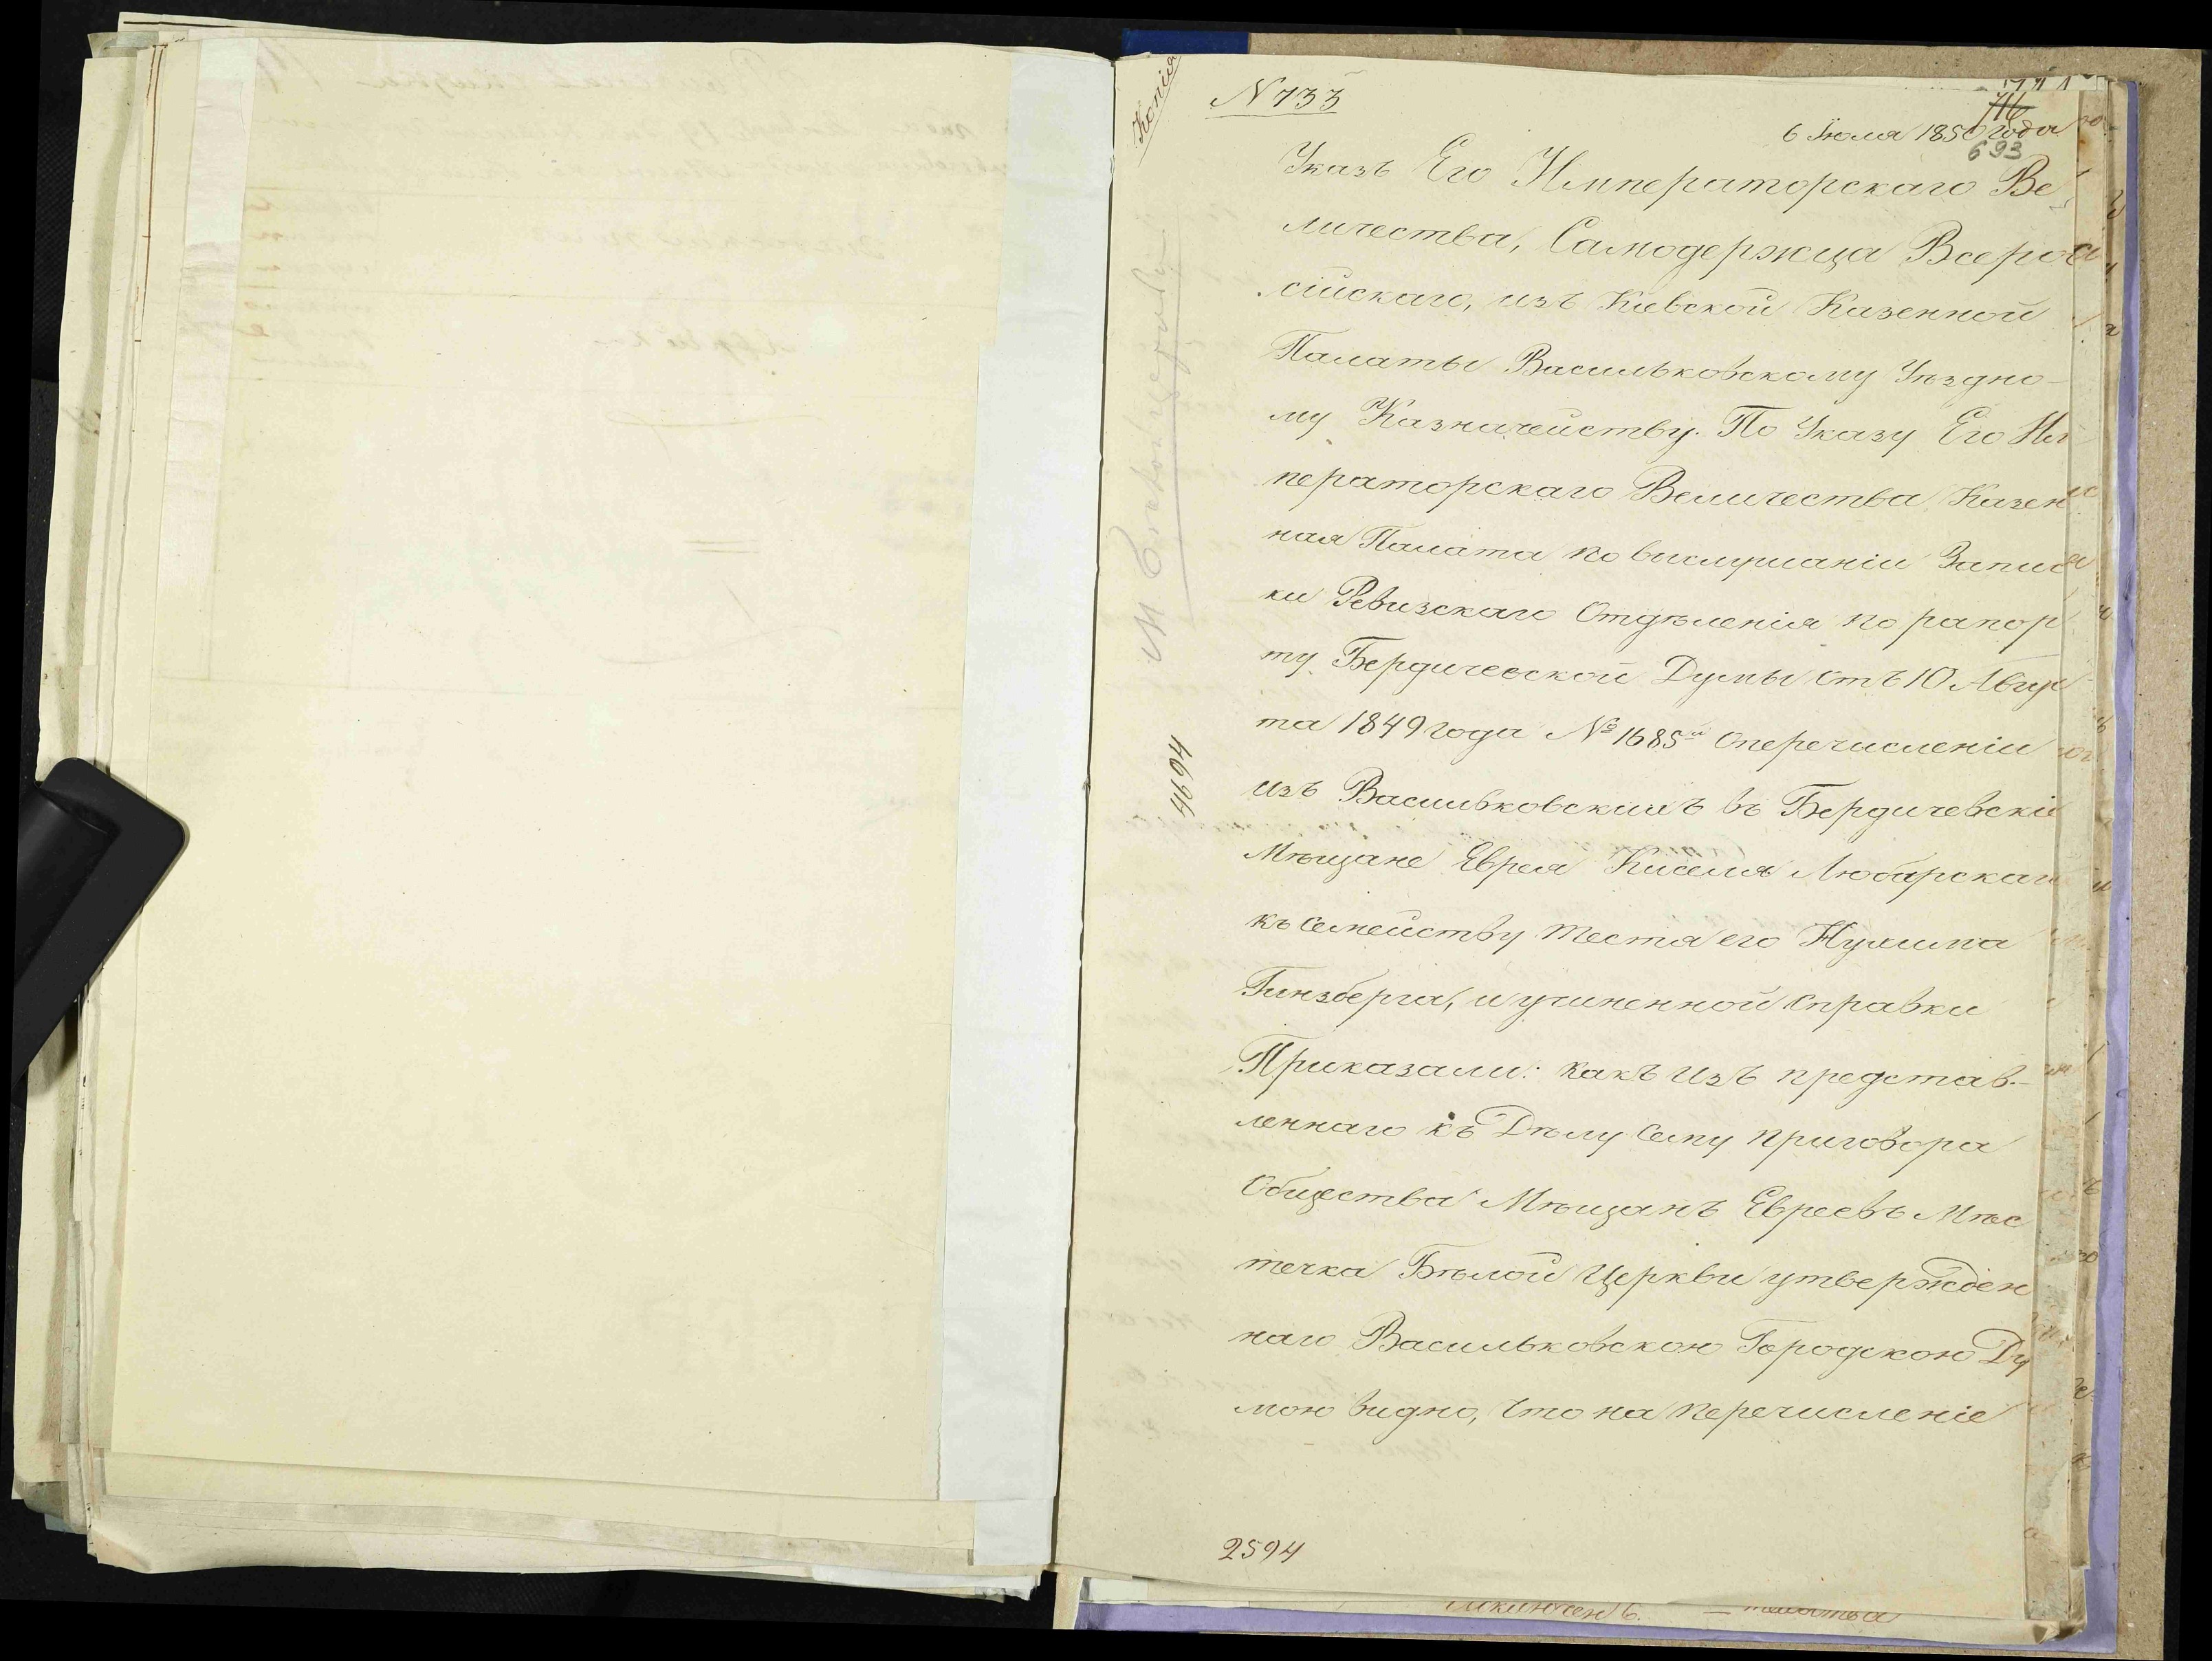 Копія
N 733
716
6 Іюля 1850 года
693
Указъ Его Императорскаго Ве
личества, Самодержца Всеро
сійскаго, изъ Кіевской Казенной
Палаты Васильковскому Уѣздно-
му Казначейству. По Указу Его Им
ператорскаго Величества Казен
ная Палата по выслушаніи Запис
ки Ревизскаго Отдѣленія по рапор
ту Бердичевской Думы отъ 10 Авгус
та 1849 года № 1685 оперечисленіи
изъ Васильковскихъ въ Бердичевскіе
Мѣщане Еврея Киселя Любарскаго
къ семейству тестя его Нухима
Гинзберга, и учиненной справки
Приказали: какъ изъ представ-
леннаго къ Дѣлу сему приговора
Общества Мѣщанъ Евреевъ Мѣс
течка Бѣлой Церкви утвержден
наго Васильковскою Городскою Ду
мою видно, что на перечисленіе
4694
2594